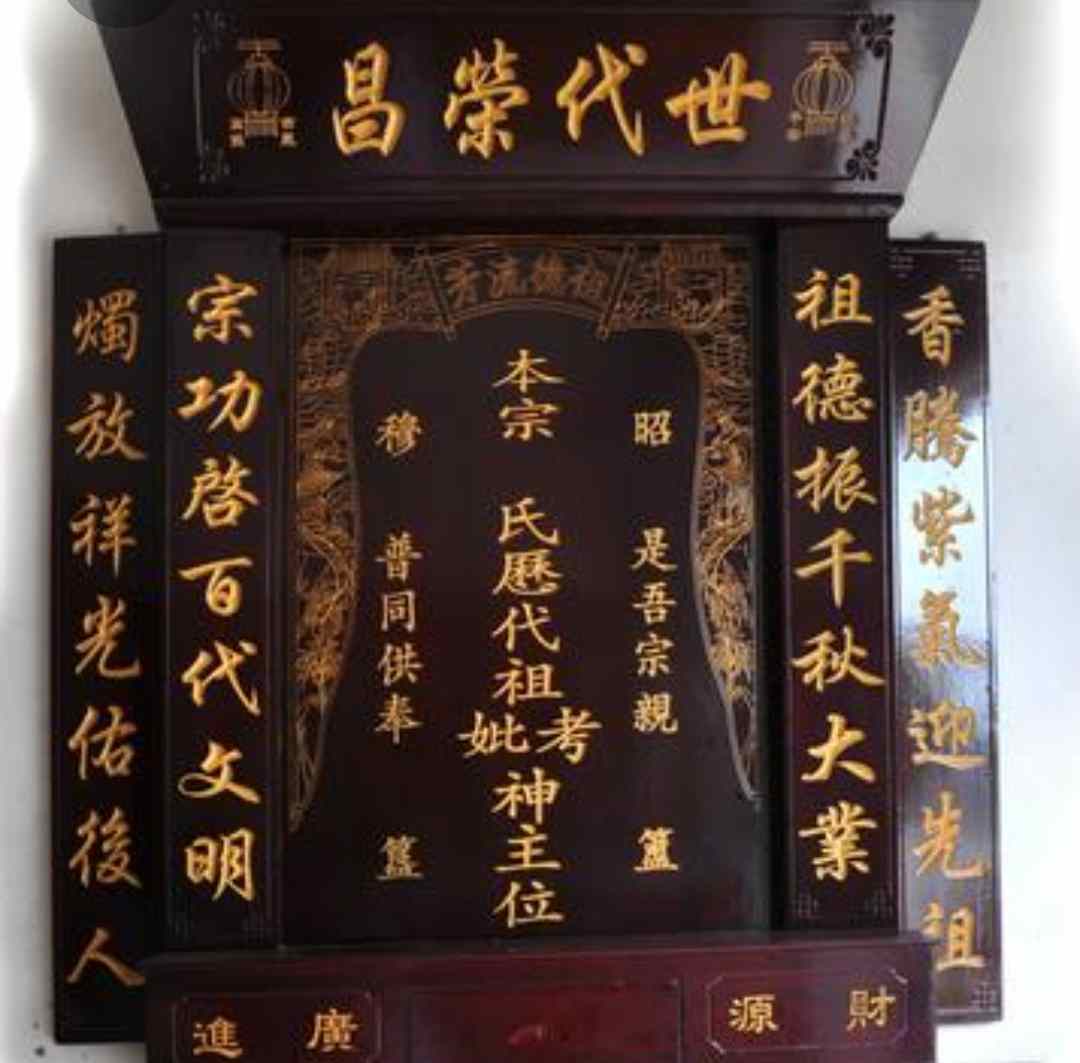 世代榮昌
香騰紫氣迎先祖
祖德振千秋大業
昭 是吾宗親 簠
本宗 氏歷代祖考妣神主位
穆 普同供奉 簋
宗功啓百代文明
燭放祥光佑後人
財源
廣進